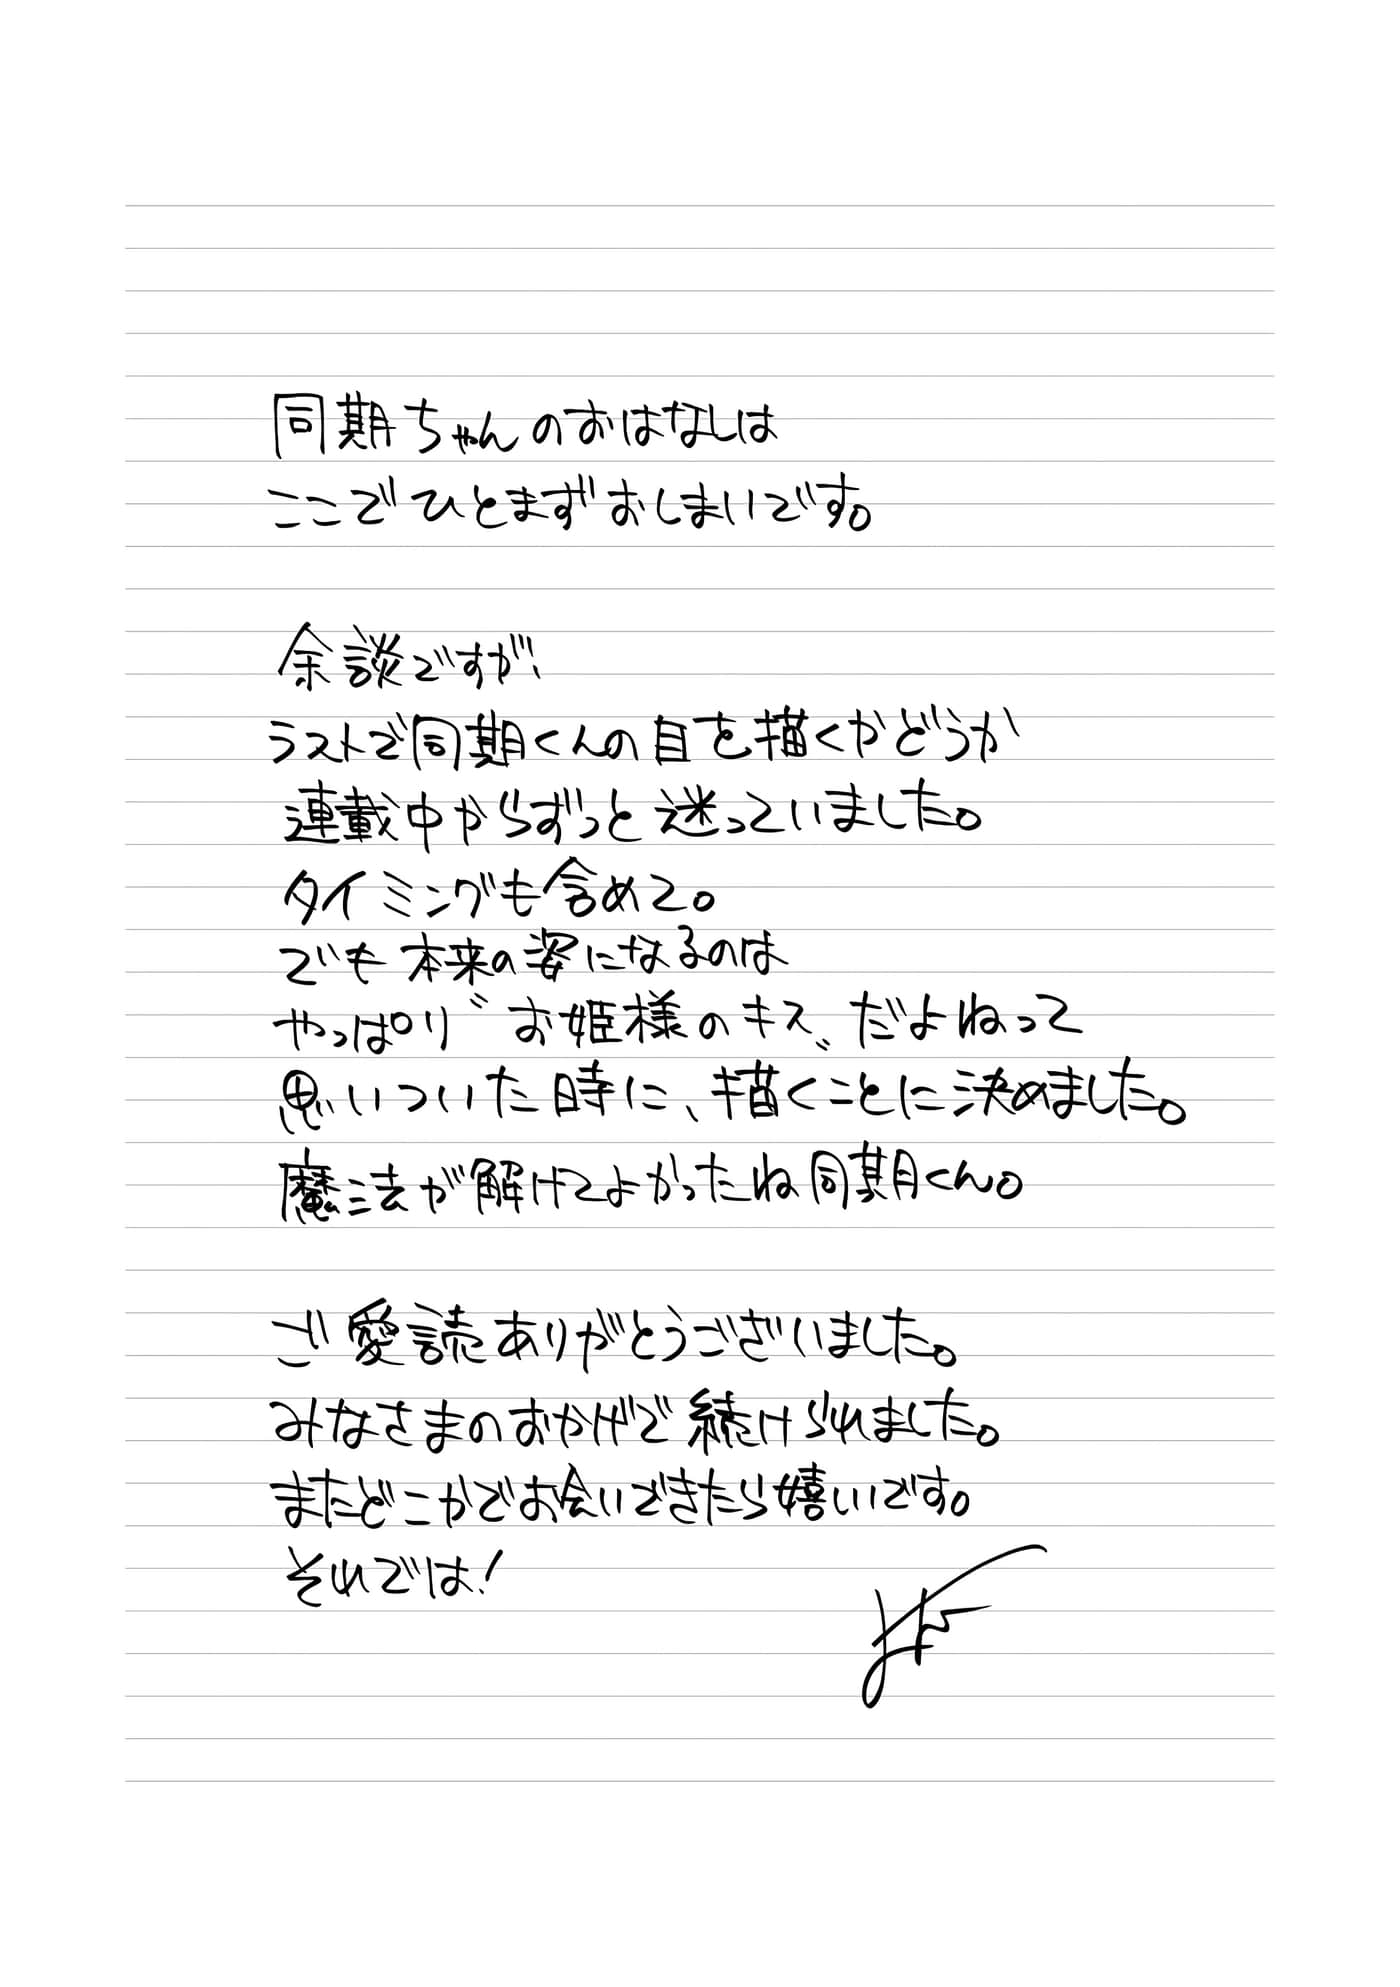 同期ちゃんのおはなしは
ここでひとまずおしまいです。
余談ですが、
ラストで同期くんの目を描くかどうか
連載中からずっと迷っていました。
タイミングも含めて。
でも本来の姿になるのは
やっぱり〝お姫様のキス〟だよねって
思いついた時に、描くことに決めました。
魔法が解けてよかったね同期くん。
ご愛読ありがとうございました。
みなさまのおかげで続けられました。
またどこかでお会いできたら嬉しいです。
それでは!